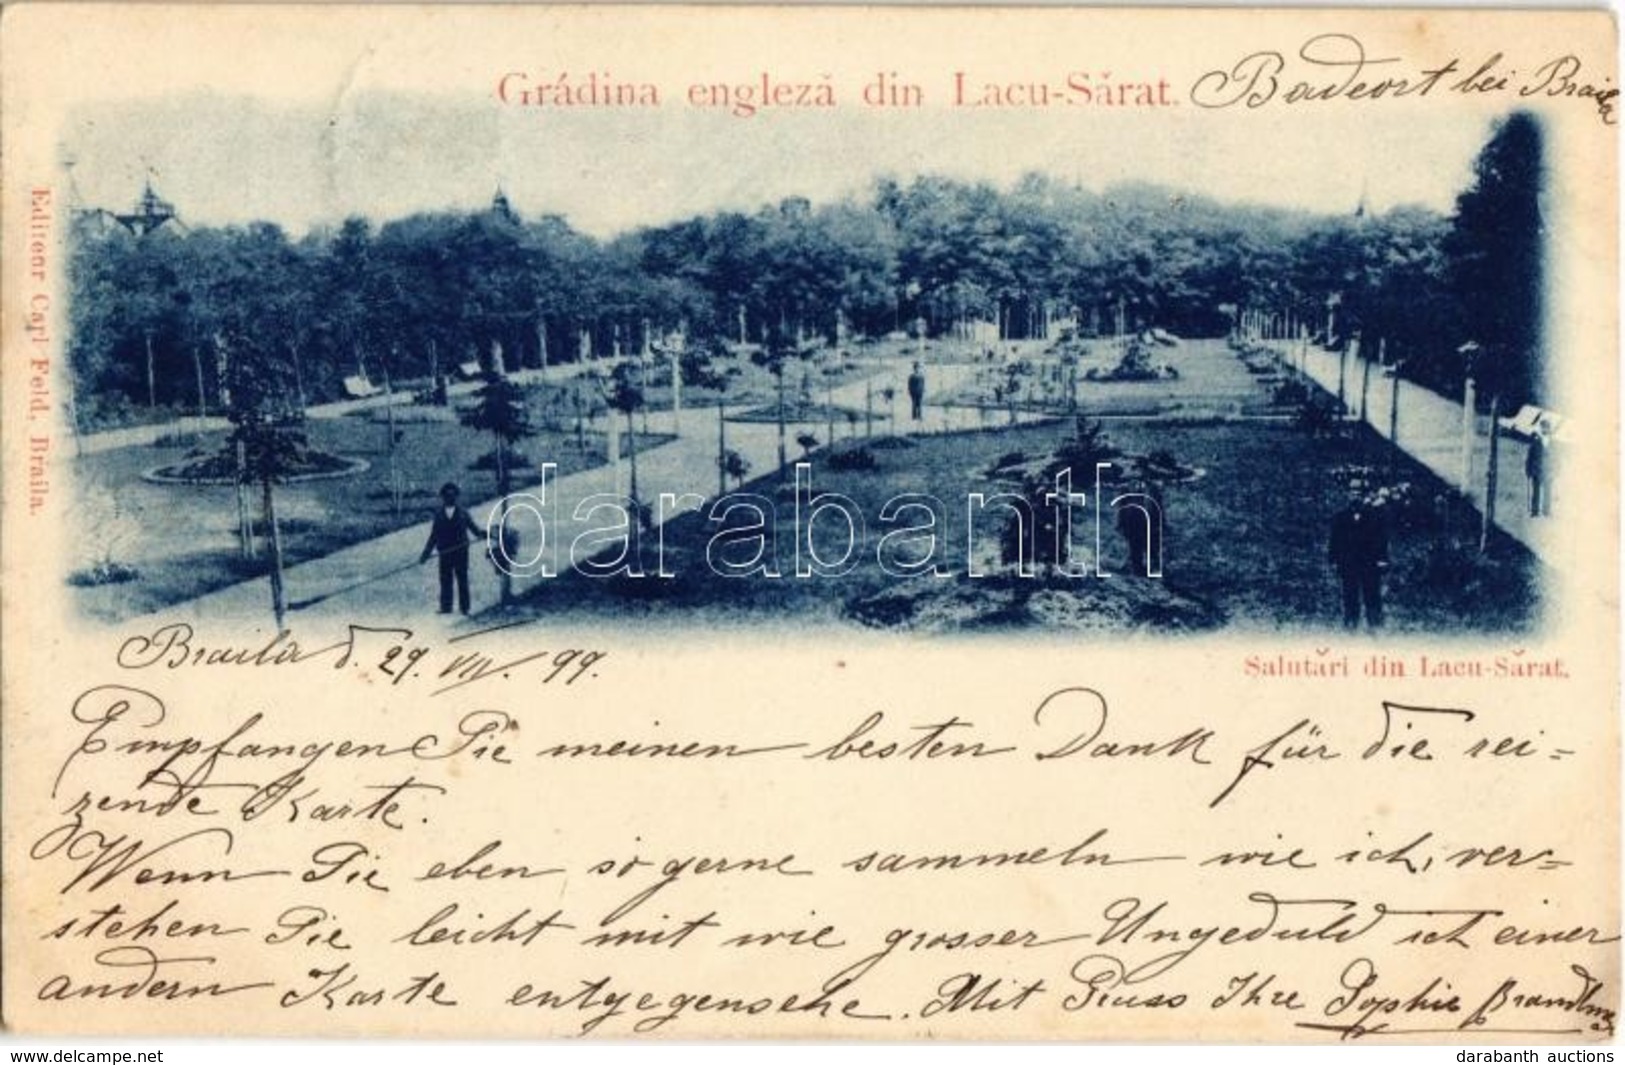 Grádina engleză din Lacu-Sărat.
Badeort bei Braila
Editeur Carl Feld, Braila.
darabanth
Salutări din Lacu-Sărat.
Braila d. 29. VII. 99.
Empfangen Sie meinen besten Dank für die rei=
zende Karte.
Wenn Sie eben so gerne sammeln wie ich, ver=
stehen Sie leicht mit wie grosser Ungeduld ich einer
andern Karte entgegensehe. Mit Gruss Ihre Sophie
darabanth auctions